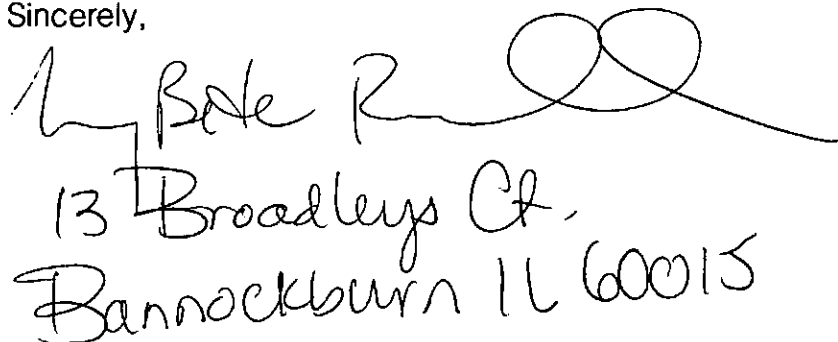 Sincerely,
13 Broadleys Ct.
Bannockburn IL 60015